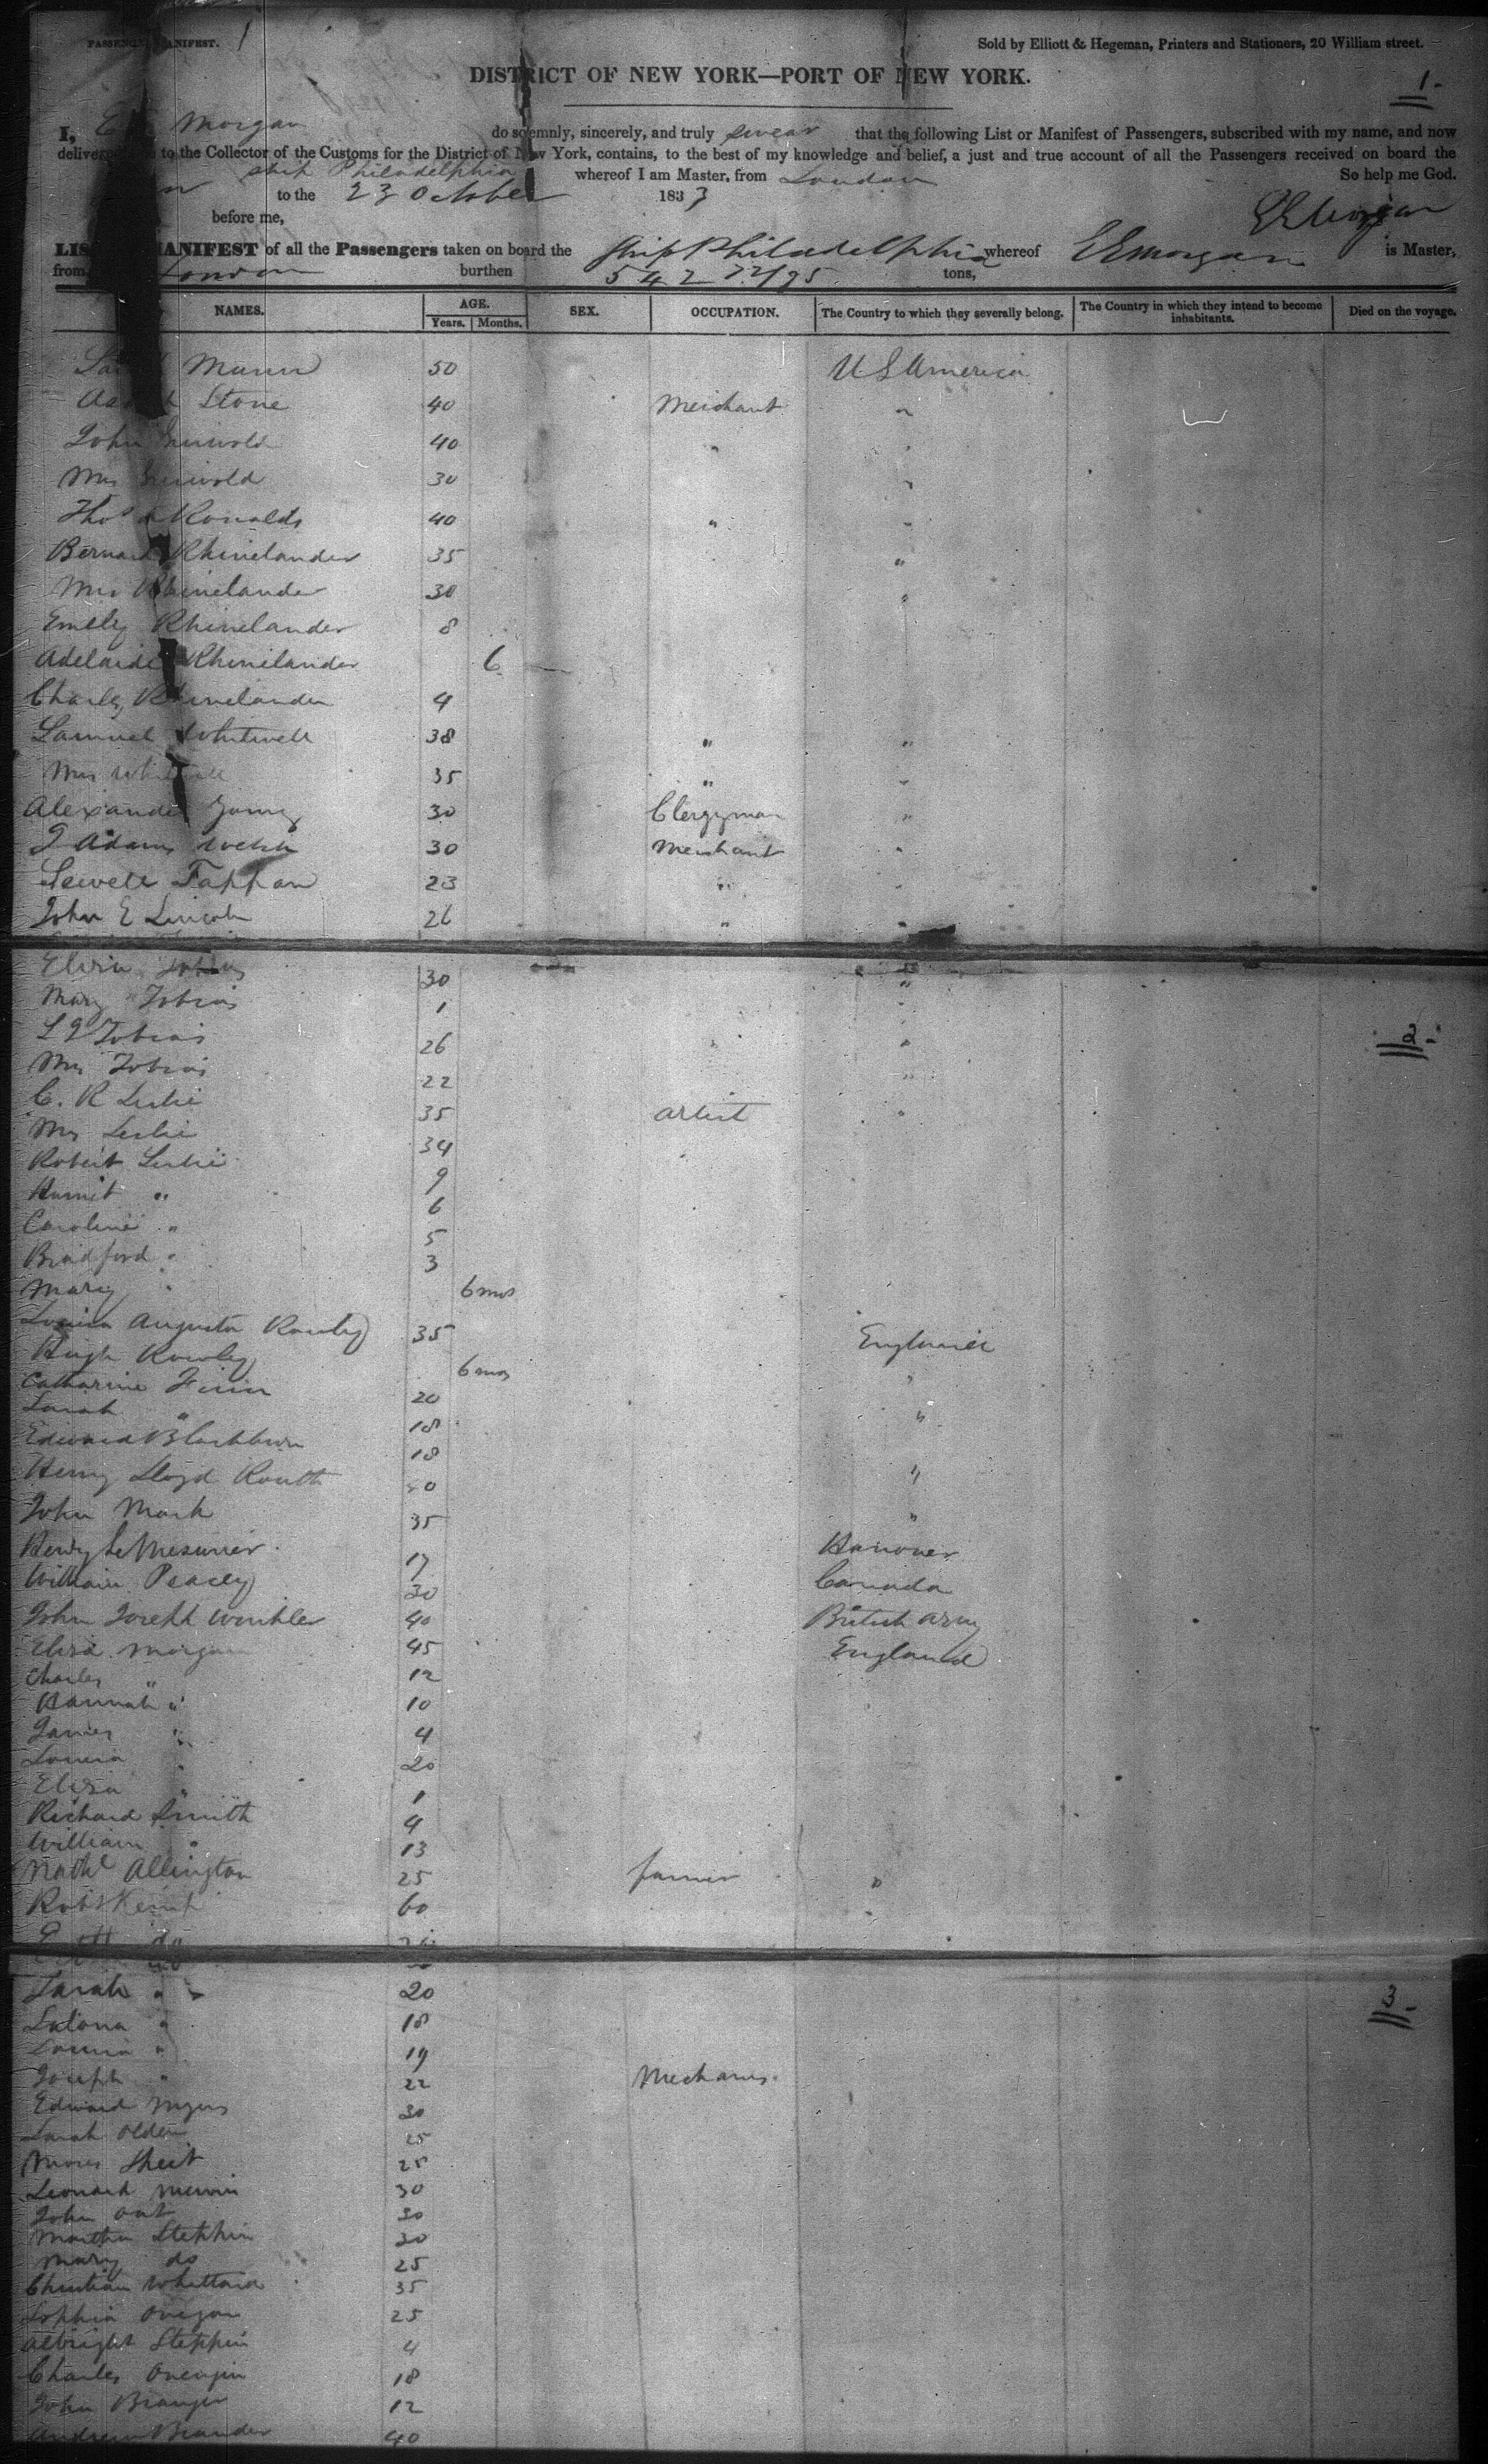 PASSENGER MANIFEST. 1
Sold by Elliott & Hegeman, Printers and Stationers, 20 William street.
DISTRICT OF NEW YORK—PORT OF NEW YORK.
1
I, E Morgan do solemnly, sincerely, and truly swear that the following List or Manifest of Passengers, subscribed with my name, and now
delivered to the Collector of the Customs for the District of New York, contains, to the best of my knowledge and belief, a just and true account of all the Passengers received on board the
ship Philadelphia whereof I am Master, from London So help me God.
to the 23 October 1833
before me, E E Morgan
LIST MANIFEST of all the Passengers taken on board the Ship Philadelphia whereof E E Morgan is Master,
from London burthen 542 72/95 tons,
NAMES. AGE. SEX. OCCUPATION. The Country to which they severally belong. The Country in which they intend to become inhabitants. Died on the voyage.
Years. Months.
Mann 50 U S America
Stone 40 Merchant "
John Griswold 40 " "
Mrs Griswold 30 "
Thos Ronalds 40 " "
Bernard Rhinelander 35 "
Mrs Rhinelander 30 "
Emely Rhinelander 8
Adelaide Rhinelander 6
Charles Rhinelander 4
Samuel Whitwell 38 " "
Mrs Whitwell 35 " "
Alexander Young 30 Clergyman "
J Adams Welsh 30 Merchant "
Sewell Tappan 23 " "
John E Lincoln 26 " "
Eliza Tobias 30 "
Mary Tobias 1 "
2
S I Tobias 26 " "
Mrs Tobias 22 "
C. R Leslie 35 artist "
Mrs Leslie 34
Robert Leslie 9
Harriet " 6
Caroline " 5
Bradford " 3
Mary " 6 mos
Louisa Augusta Rowley 35 England
Hugh Rowley 6 mos "
Catharine Finn 20
Sarah " 18 "
Edward Blackburn 18
Henry Lloyd Routh 40 "
John Mack 35 "
Henry LeMesurier 17 Hanover
William Peacey 30 Canada
John Joseph Winkler 40 British army
Eliza Morgan 45 England
Charles " 12
Hannah " 10
James " 4
Louisa " 20
Eliza " 1
Richard Smith 4
William " 13
Nathl Allington 25 farmer "
Robt Kemp 60 "
do
Sarah " 20
3
18
Louisa " 19
Joseph " 22 Mechanics
Edward Myers 30
Sarah Olden 25
Moses 25
Leonard 30
John 30
Martha Stephin 30
Mary do 25
Christian Whittard 35
Sophia 25
Albright Stephin 4
Charles 18
John 12
Andrew Brander 40